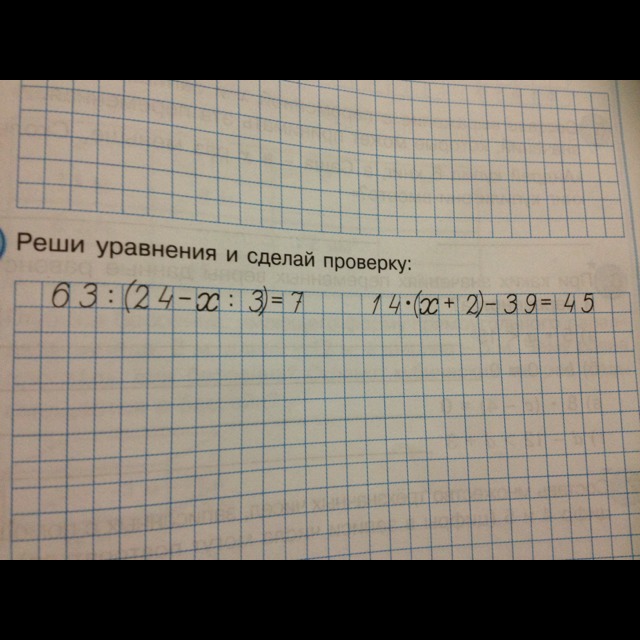 Реши уравнения и сделай проверку:
63:(24-x:3)=7 14·(x+2)-39=45